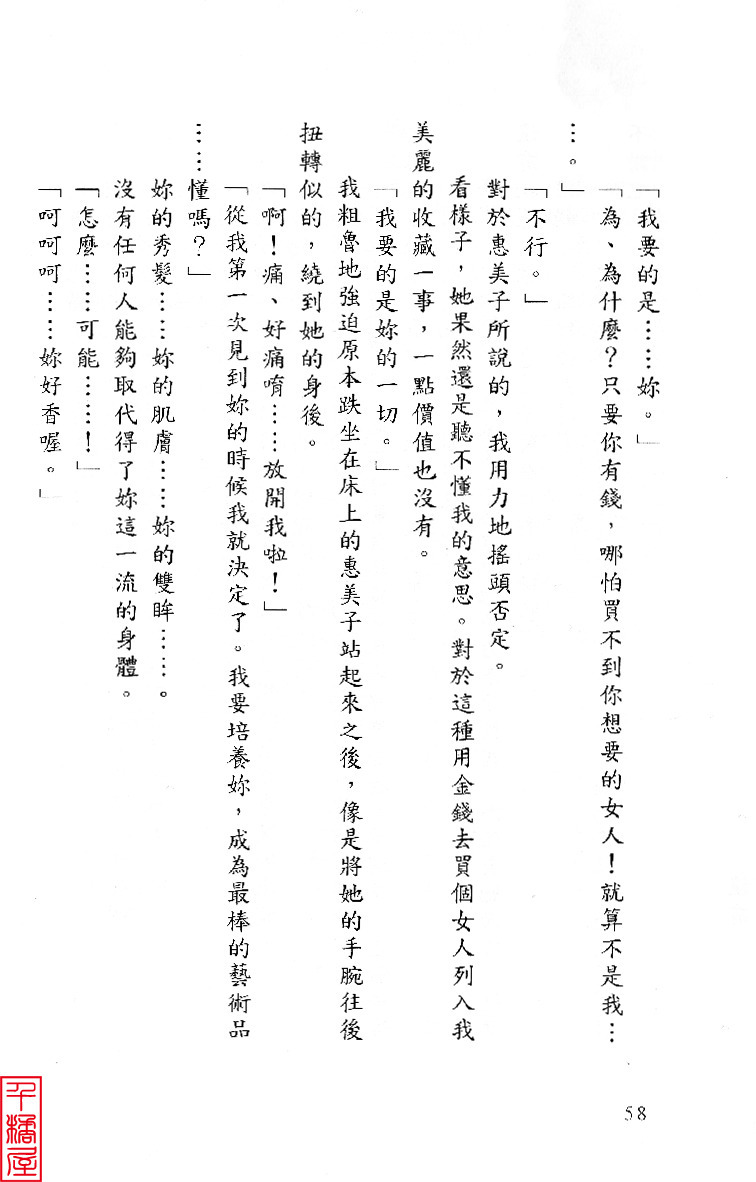 「我要的是……妳。」
「為、為什麼？只要你有錢，哪怕買不到你想要的女人！就算不是我…
…。」
「不行。」
對於惠美子所說的，我用力地搖頭否定。
看樣子，她果然還是聽不懂我的意思。對於這種用金錢去買個女人列入我
美麗的收藏一事，一點價值也沒有。
「我要的是妳的一切。」
我粗魯地強迫原本跌坐在床上的惠美子站起來之後，像是將她的手腕往後
扭轉似的，繞到她的身後。
「啊！痛、好痛唷……放開我啦！」
「從我第一次見到妳的時候我就決定了。我要培養妳，成為最棒的藝術品
……懂嗎？」
妳的秀髮……妳的肌膚……妳的雙眸……。
沒有任何人能夠取代得了妳這一流的身體。
「怎麼……可能……！」
「呵呵呵……妳好香喔。」
58